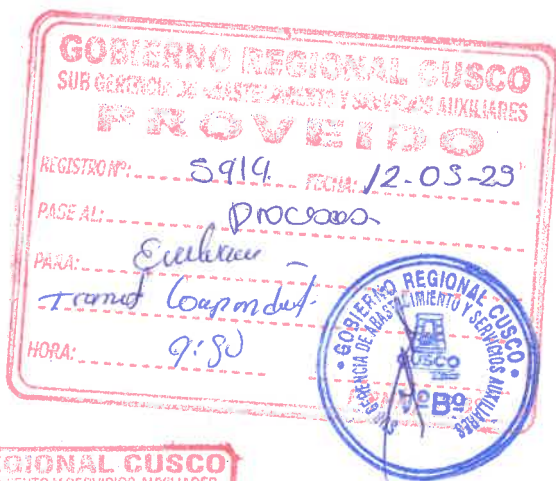 GOBIERNO REGIONAL CUSCO
SUB GERENCIA DE ABASTECIMIENTO Y SERVICIOS AUXILIARES
PROVEIDO
REGISTRO Nº: 5914. FECHA: 12-05-23
PASE AL: Procesos
PARA:
Tramit
HORA: 9:30
GOBIERNO REGIONAL CUSCO
SUB GERENCIA DE ABASTECIMIENTO Y SERVICIOS AUXILIARES
CUSCO
VºBº
REGIONAL CUSCO